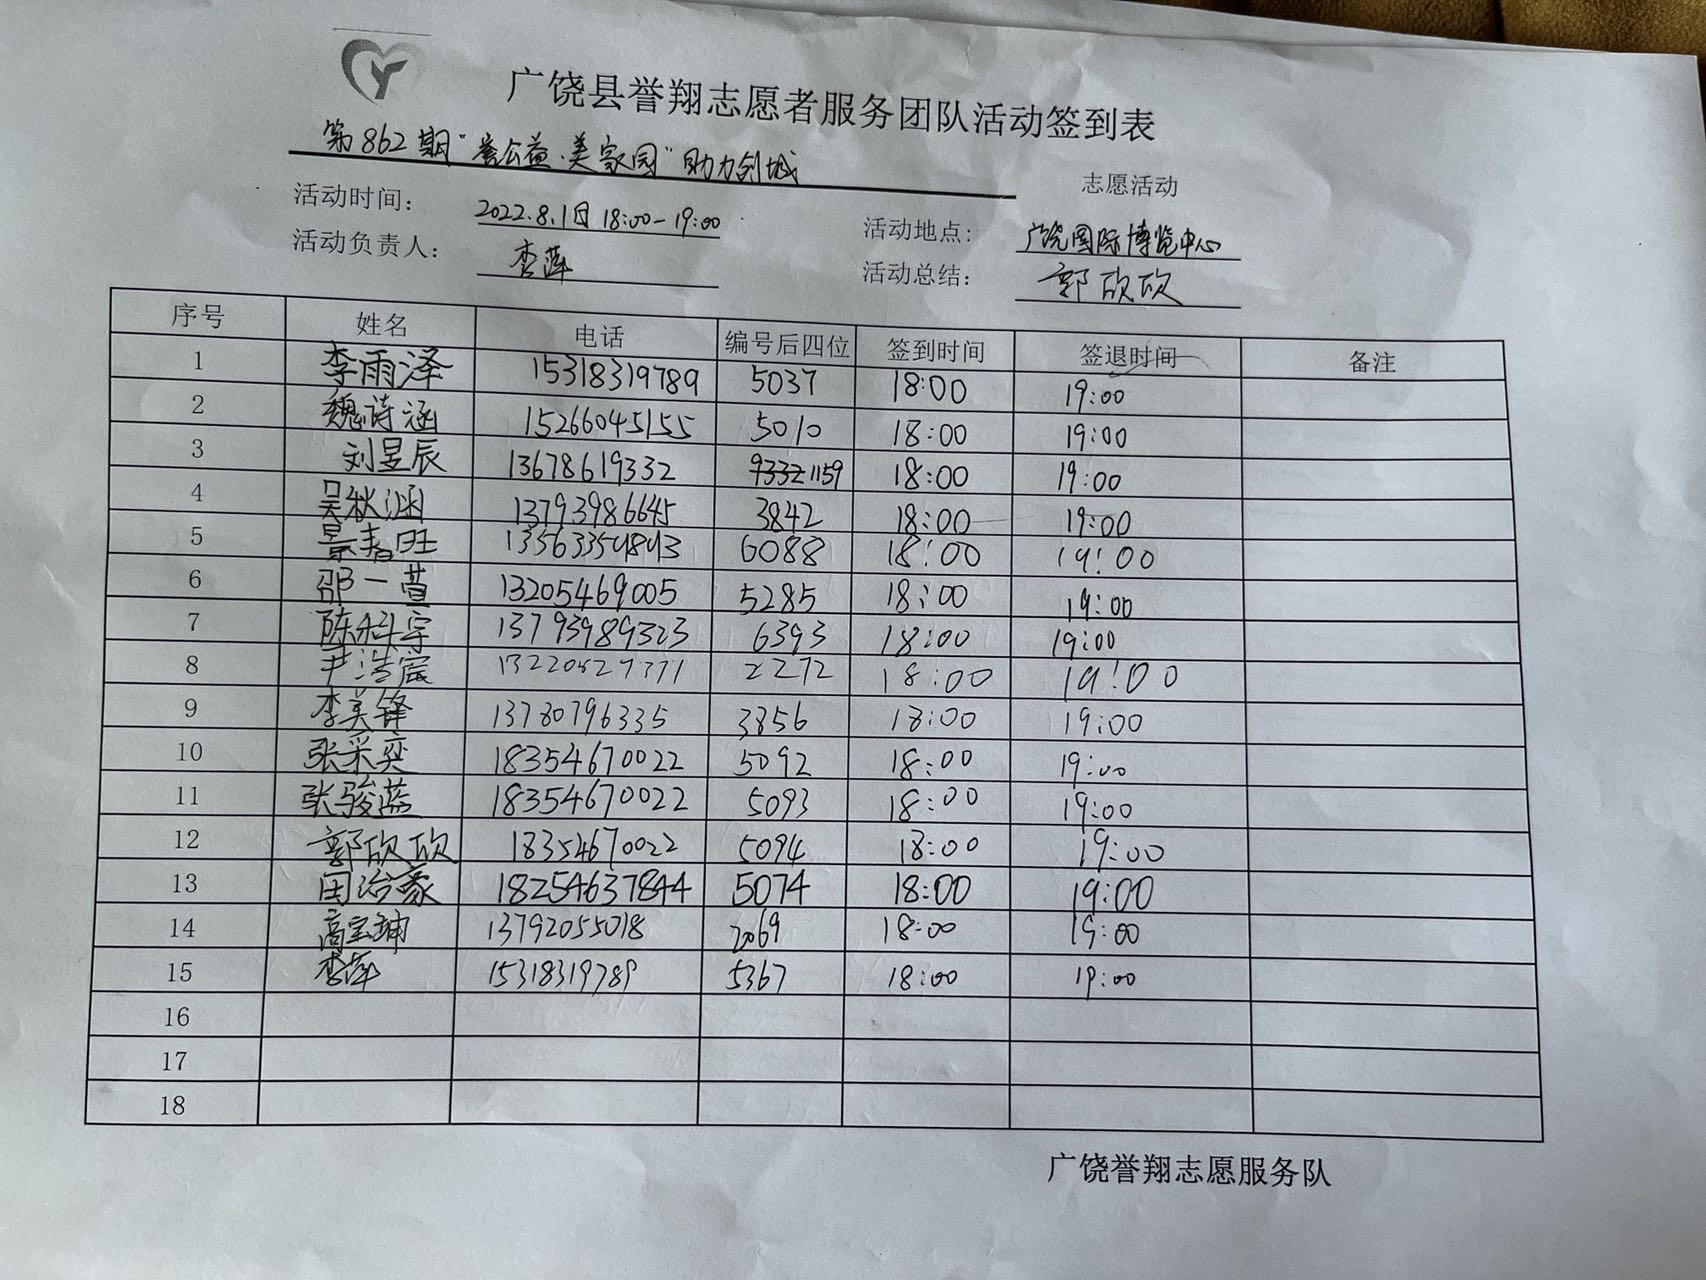 广饶县誉翔志愿者服务团队活动签到表
第862期"誉公益·美家园"助力创城 志愿活动
活动时间： 2022.8.1日 18:00-19:00 活动地点： 广饶国际博览中心
活动负责人： 李萍 活动总结： 郭欣欣
序号 姓名 电话 编号后四位 签到时间 签退时间 备注
1 李雨泽 15318319789 5037 18:00 19:00
2 魏诗涵 15266045155 5010 18:00 19:00
3 刘昱辰 13678619332 1159 18:00 19:00
4 吴秋涵 13793986645 3842 18:00 19:00
5 景春旺 6088 18:00 19:00
6 邵一萱 13205469005 5285 18:00 19:00
7 陈科宇 13793989323 6393 18:00 19:00
8 尹浩宸 2272 18:00 19:00
9 李美锋 13780796335 3856 18:00 19:00
10 张采奕 18354670022 5092 18:00 19:00
11 张骏蓝 18354670022 5093 18:00 19:00
12 郭欣欣 18354670022 5094 18:00 19:00
13 田治豪 18254637844 5074 18:00 19:00
14 13792055018 2069 18:00 19:00
15 李萍 15318319789 5367 18:00 19:00
16
17
18
广饶誉翔志愿服务队